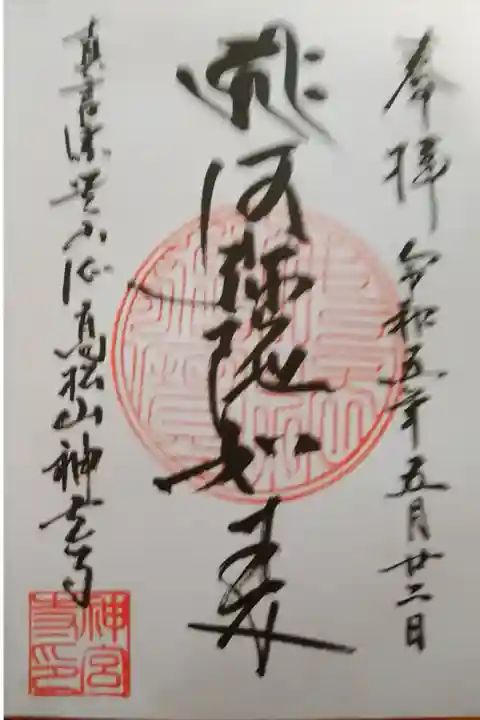 奉拝 令和五年五月廿二日
阿弥陀如来
真言宗豊山派高松山神宮寺
神宮寺印